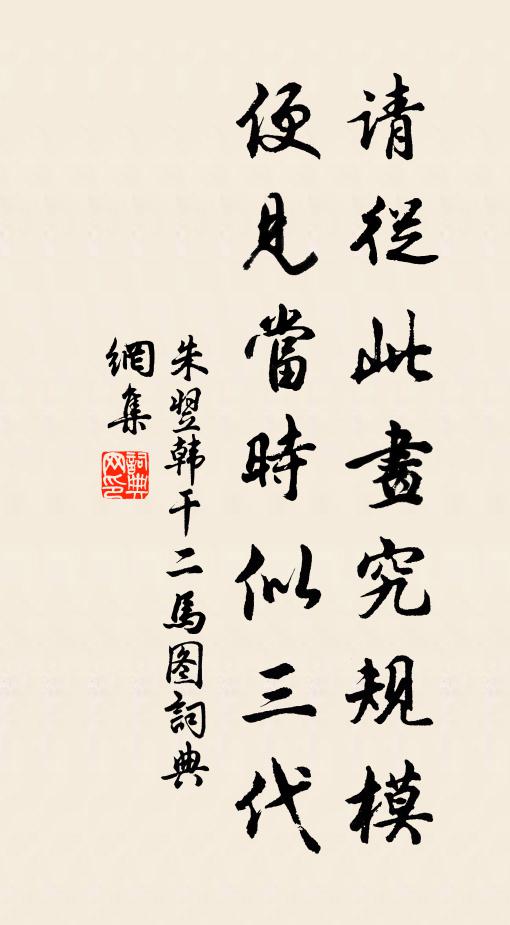 请從此畫究規模
便見當時似三代
朱翌韩干二馬图詞典
網集
詞典
网印